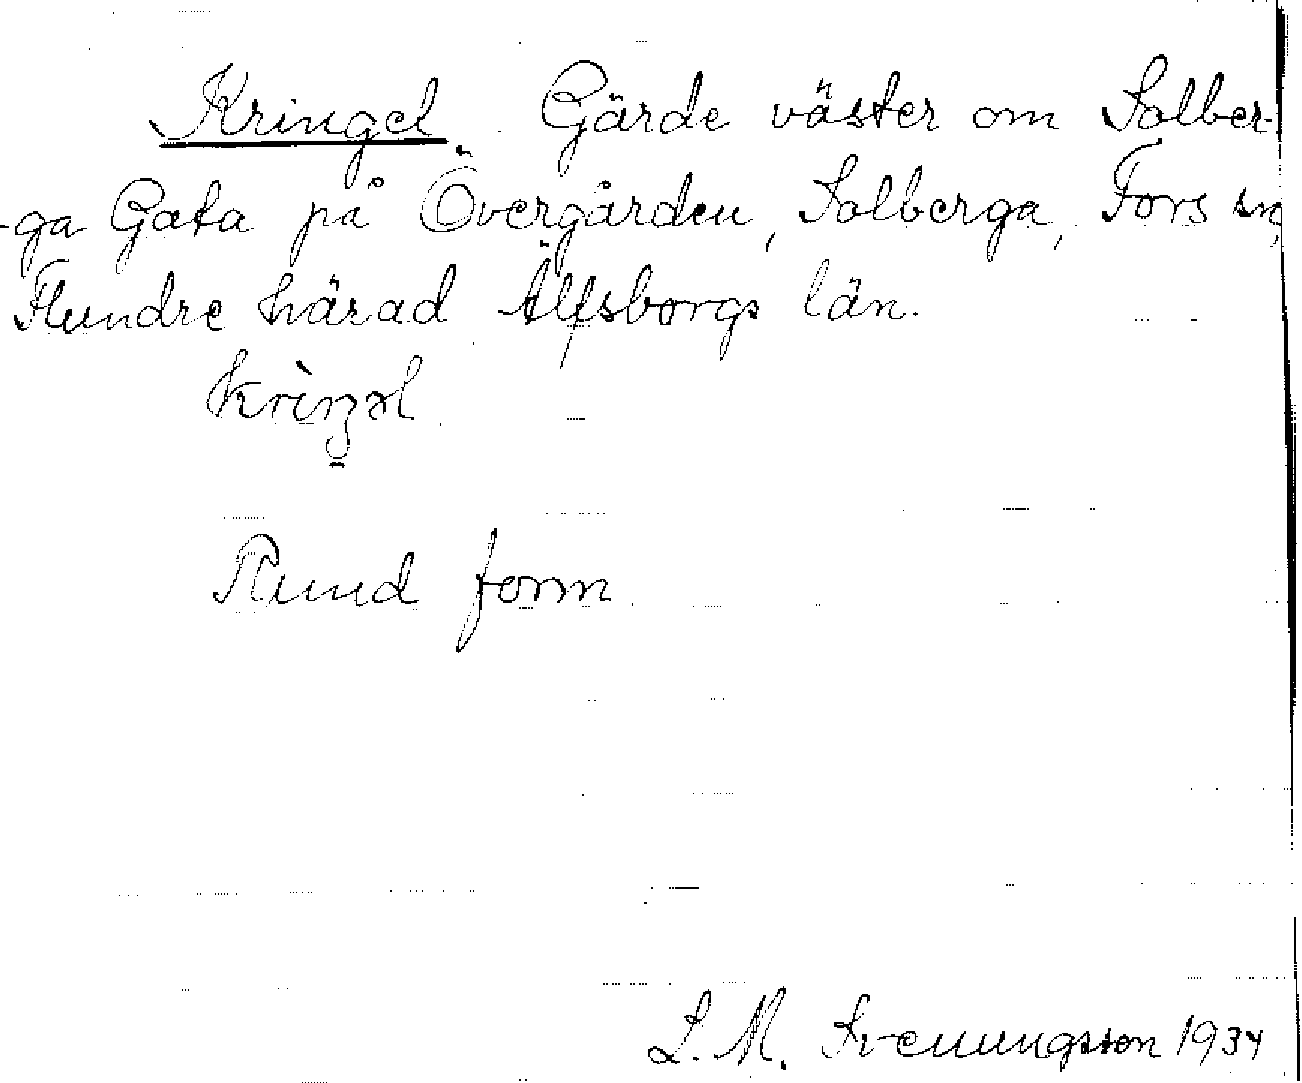 Kringel. Gärde väster om Solber-
-ga Gata på Övergården, Solberga, Fors sn,
Flundre härad Älfsborgs län.
Rund form
S. M. Svenungsson 1934